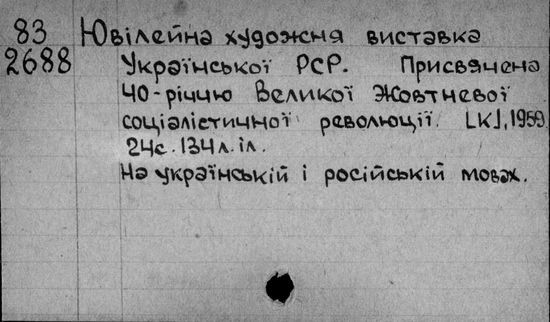 83 Ювілейна художня виставка
2688 Української РСР. Присвячена
40-річчю Великої Жовтневої
соціалістичної революції. [К], 1959
24с. 134л. іл.
На українській і російській мовах.